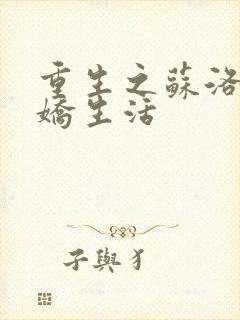 重生之蘇洛
嬌生活
子與犭